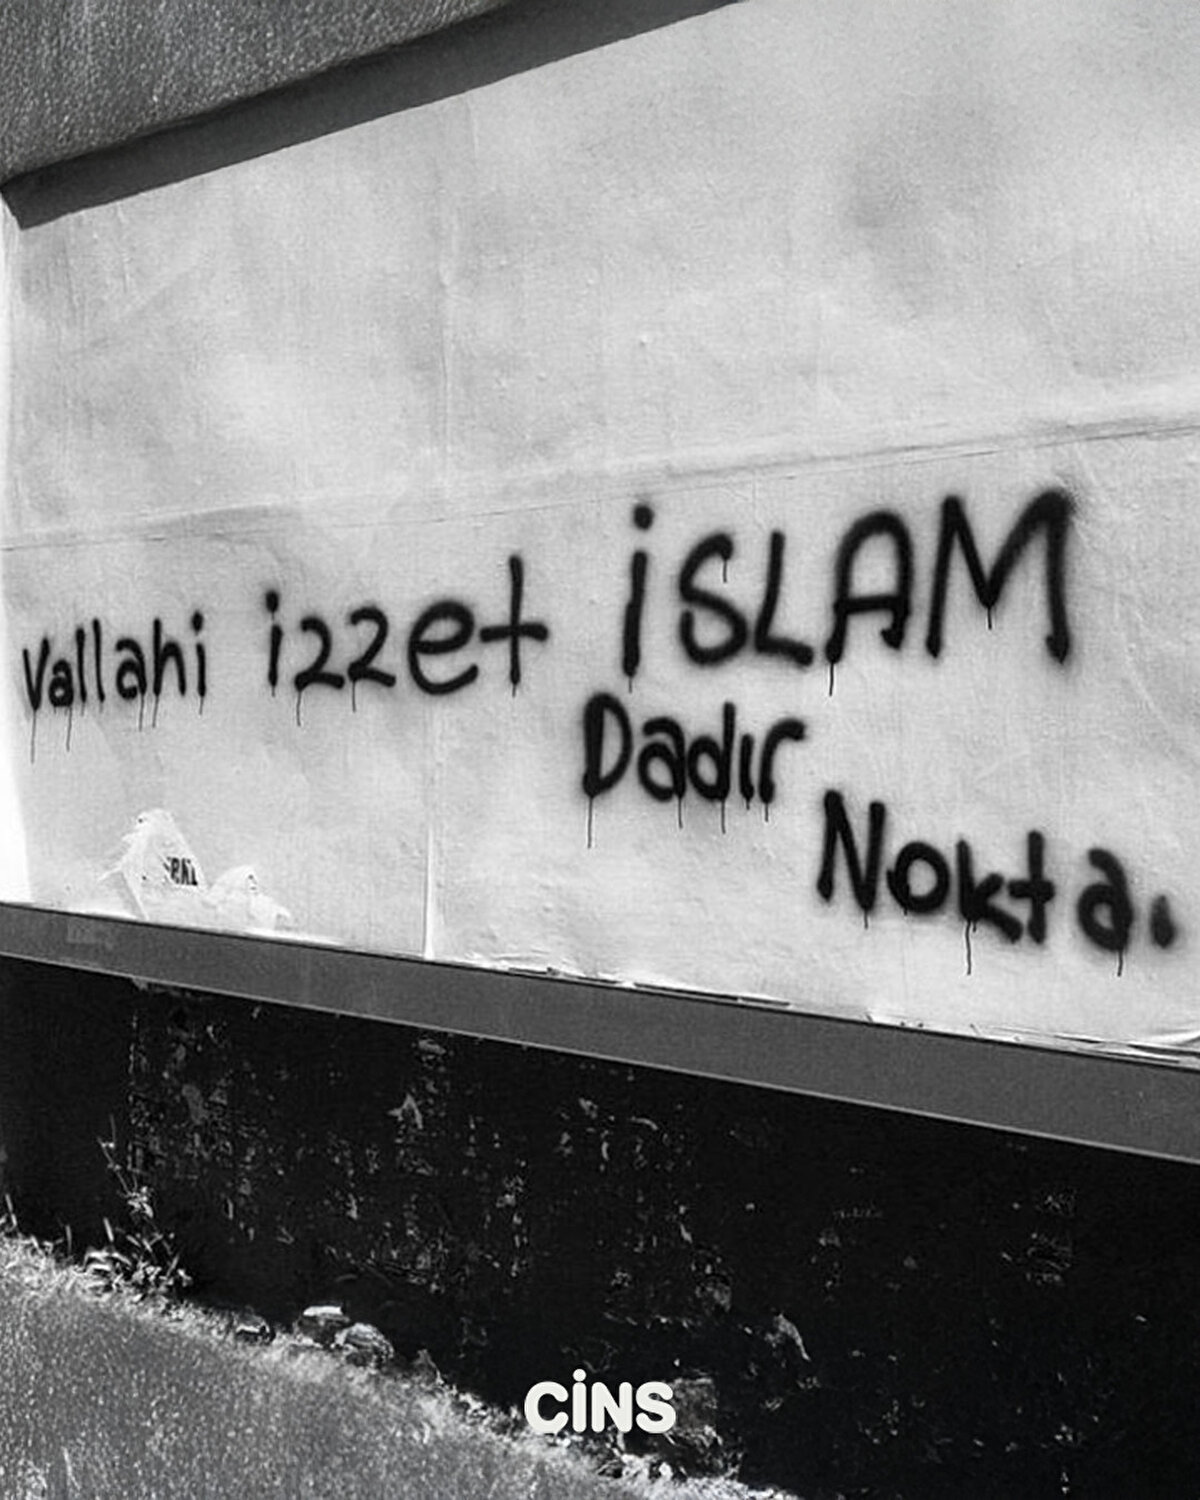 Vallahi izzet İSLAM
Dadır
Nokta.
CİNS